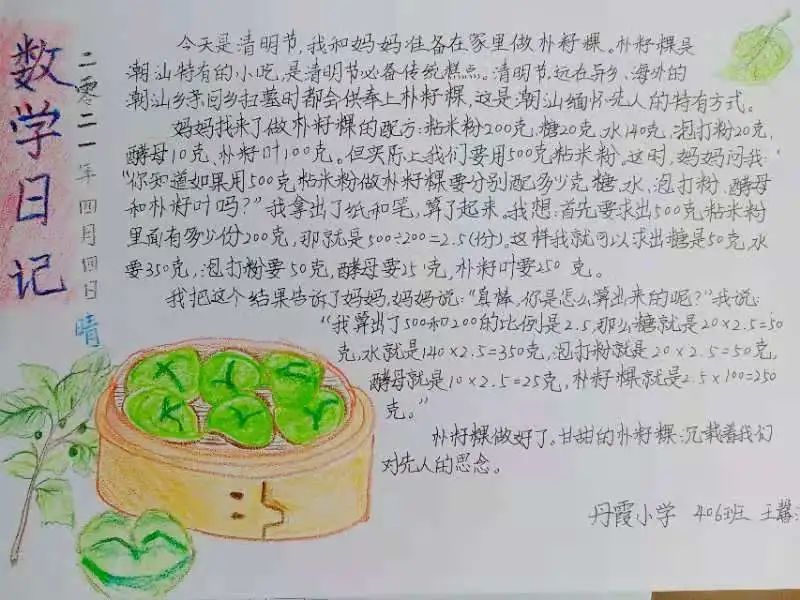 数学日记
二零二一年四月四日 晴
今天是清明节,我和妈妈准备在家里做朴籽粿。朴籽粿是
潮汕特有的小吃,是清明节必备传统糕点。清明节,远在异乡、海外的
潮汕乡亲回乡扫墓时都会供奉上朴籽粿,这是潮汕缅怀先人的特有方式。
妈妈找来了做朴籽粿的配方:粘米粉200克,糖20克,水140克,泡打粉20克,
酵母10克,朴籽叶100克。但实际上我们要用500克粘米粉。这时,妈妈问我:
“你知道如果用500克粘米粉做朴籽粿要分别配多少克糖、水、泡打粉、酵母
和朴籽叶吗?”我拿出了纸和笔,算了起来。我想:首先要求出500克粘米粉
里面有多少份200克,那就是500÷200=2.5(份)。这样我就可以求出糖是50克,水
要350克,泡打粉要50克,酵母要25克,朴籽叶要250克。
我把这个结果告诉了妈妈,妈妈说:“真棒,你是怎么算出来的呢?”我说:
“我算出了500和200的比例是2.5,那么糖就是20×2.5=50
克,水就是140×2.5=350克,泡打粉就是20×2.5=50克,
酵母就是10×2.5=25克,朴籽粿就是2.5×100=250
克。”
朴籽粿做好了。甘甜的朴籽粿沉载着我们
对先人的思念。
丹霞小学 406班 王馨